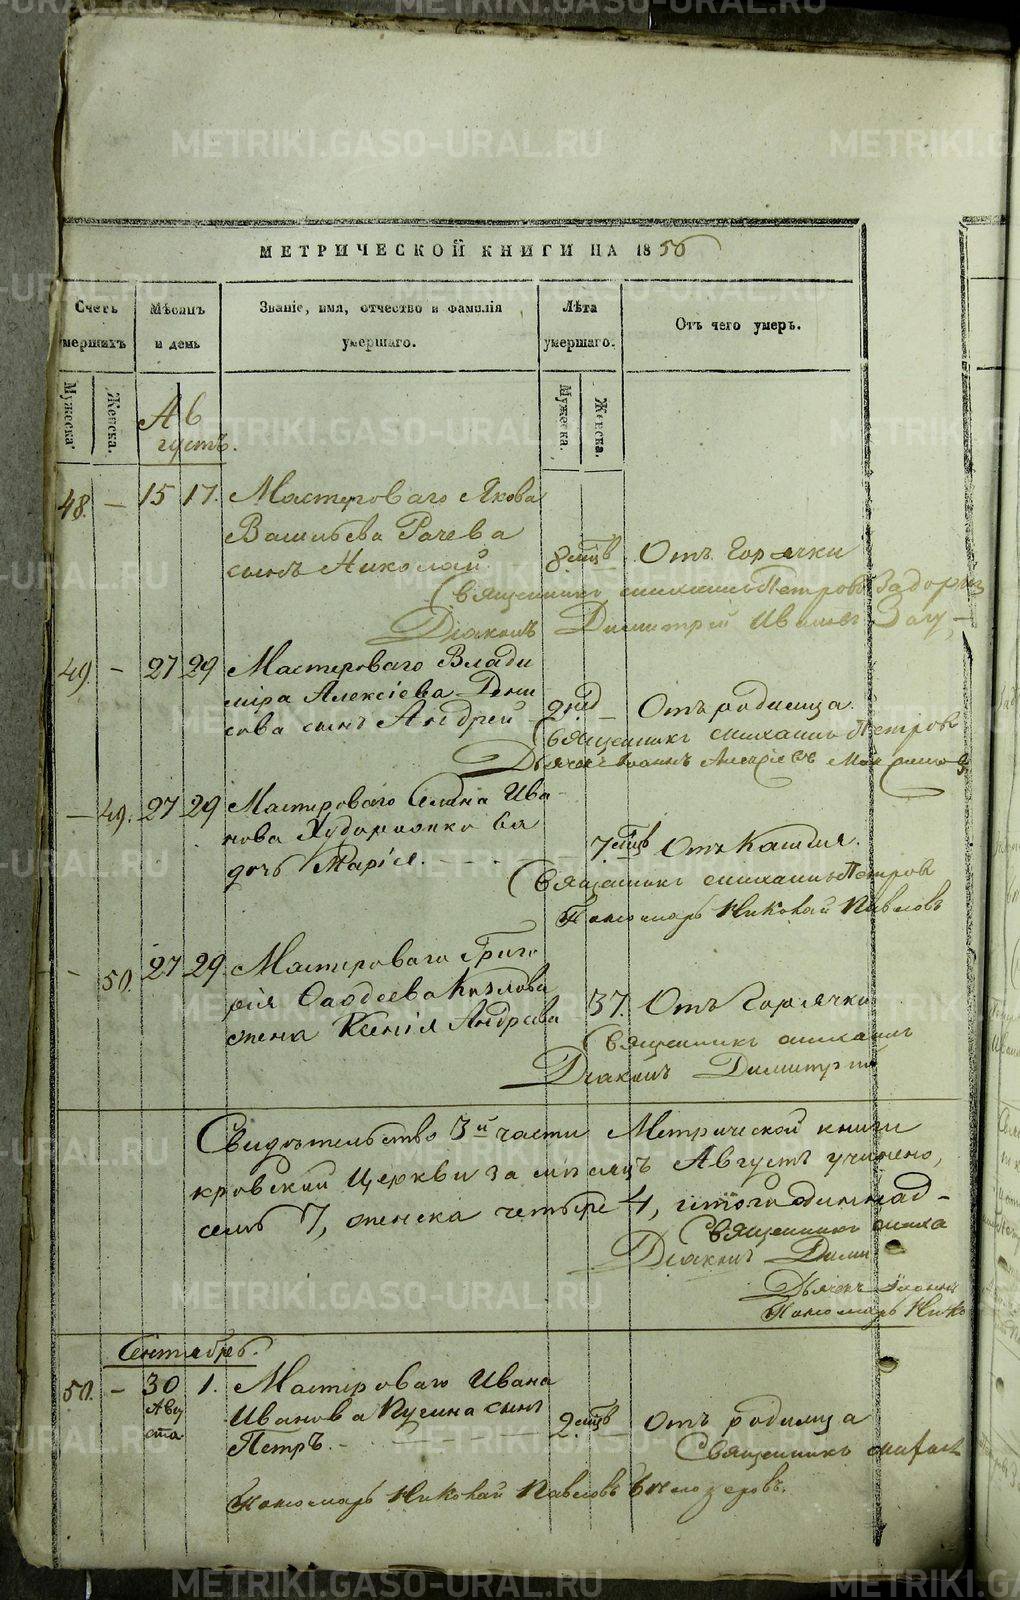 МЕТРИЧЕСКОЙ КНИГИ НА 1856
Счетъ умершихъ
Мѣсяцъ и день
Званіе, имя, отчество и фамилія умершаго.
Лѣта умершаго.
Отъ чего умеръ.
Мужеска.
Женска.
Мужеска.
Женска.
Ав
густъ.
48. – 15 17. Мастероваго Якова
Васильева Рачева
сынъ Николай 8 мцв Отъ Горячки
Священникъ Михаилъ Петровъ
Діаконъ Димитрій
49. – 27 29 Мастероваго Влади
міра Алексіева Дени
сова сынъ Андрей 2 нед Отъ родимца.
Священникъ Михаилъ Петровъ
Дьячекъ Іоаннъ
– 49. 27 29 Мастероваго Ива
нова
дочь Марія. 7 мцв Отъ Кашля.
Священникъ Михаилъ Петров
Пономарь Николай Павловъ
– 50. 27 29. Мастероваго Григо
рія Фаддеева Козлова
жена Ксенія Андреева 37. Отъ Горячки
Священникъ Михаилъ
Діаконъ Димитрій
Свидѣтельство 3й части Метрической книги
кровской Церкви за мѣсяцъ Августъ учинено,
семь 7, женска четыре 4, итого одиннад-
Священникъ Миха
Діаконъ Дими
Дьячекъ Іоаннъ
Пономарь Нико
Сентябрь.
50. – 30 1. Мастероваго Ивана
Авгу
ста
Иванова Пугина сынъ
Петръ. 2 мцв Отъ родимца
Священникъ
Пономарь Николай Павловъ Бѣлозеровъ.
METRIKI.GASO-URAL.RU